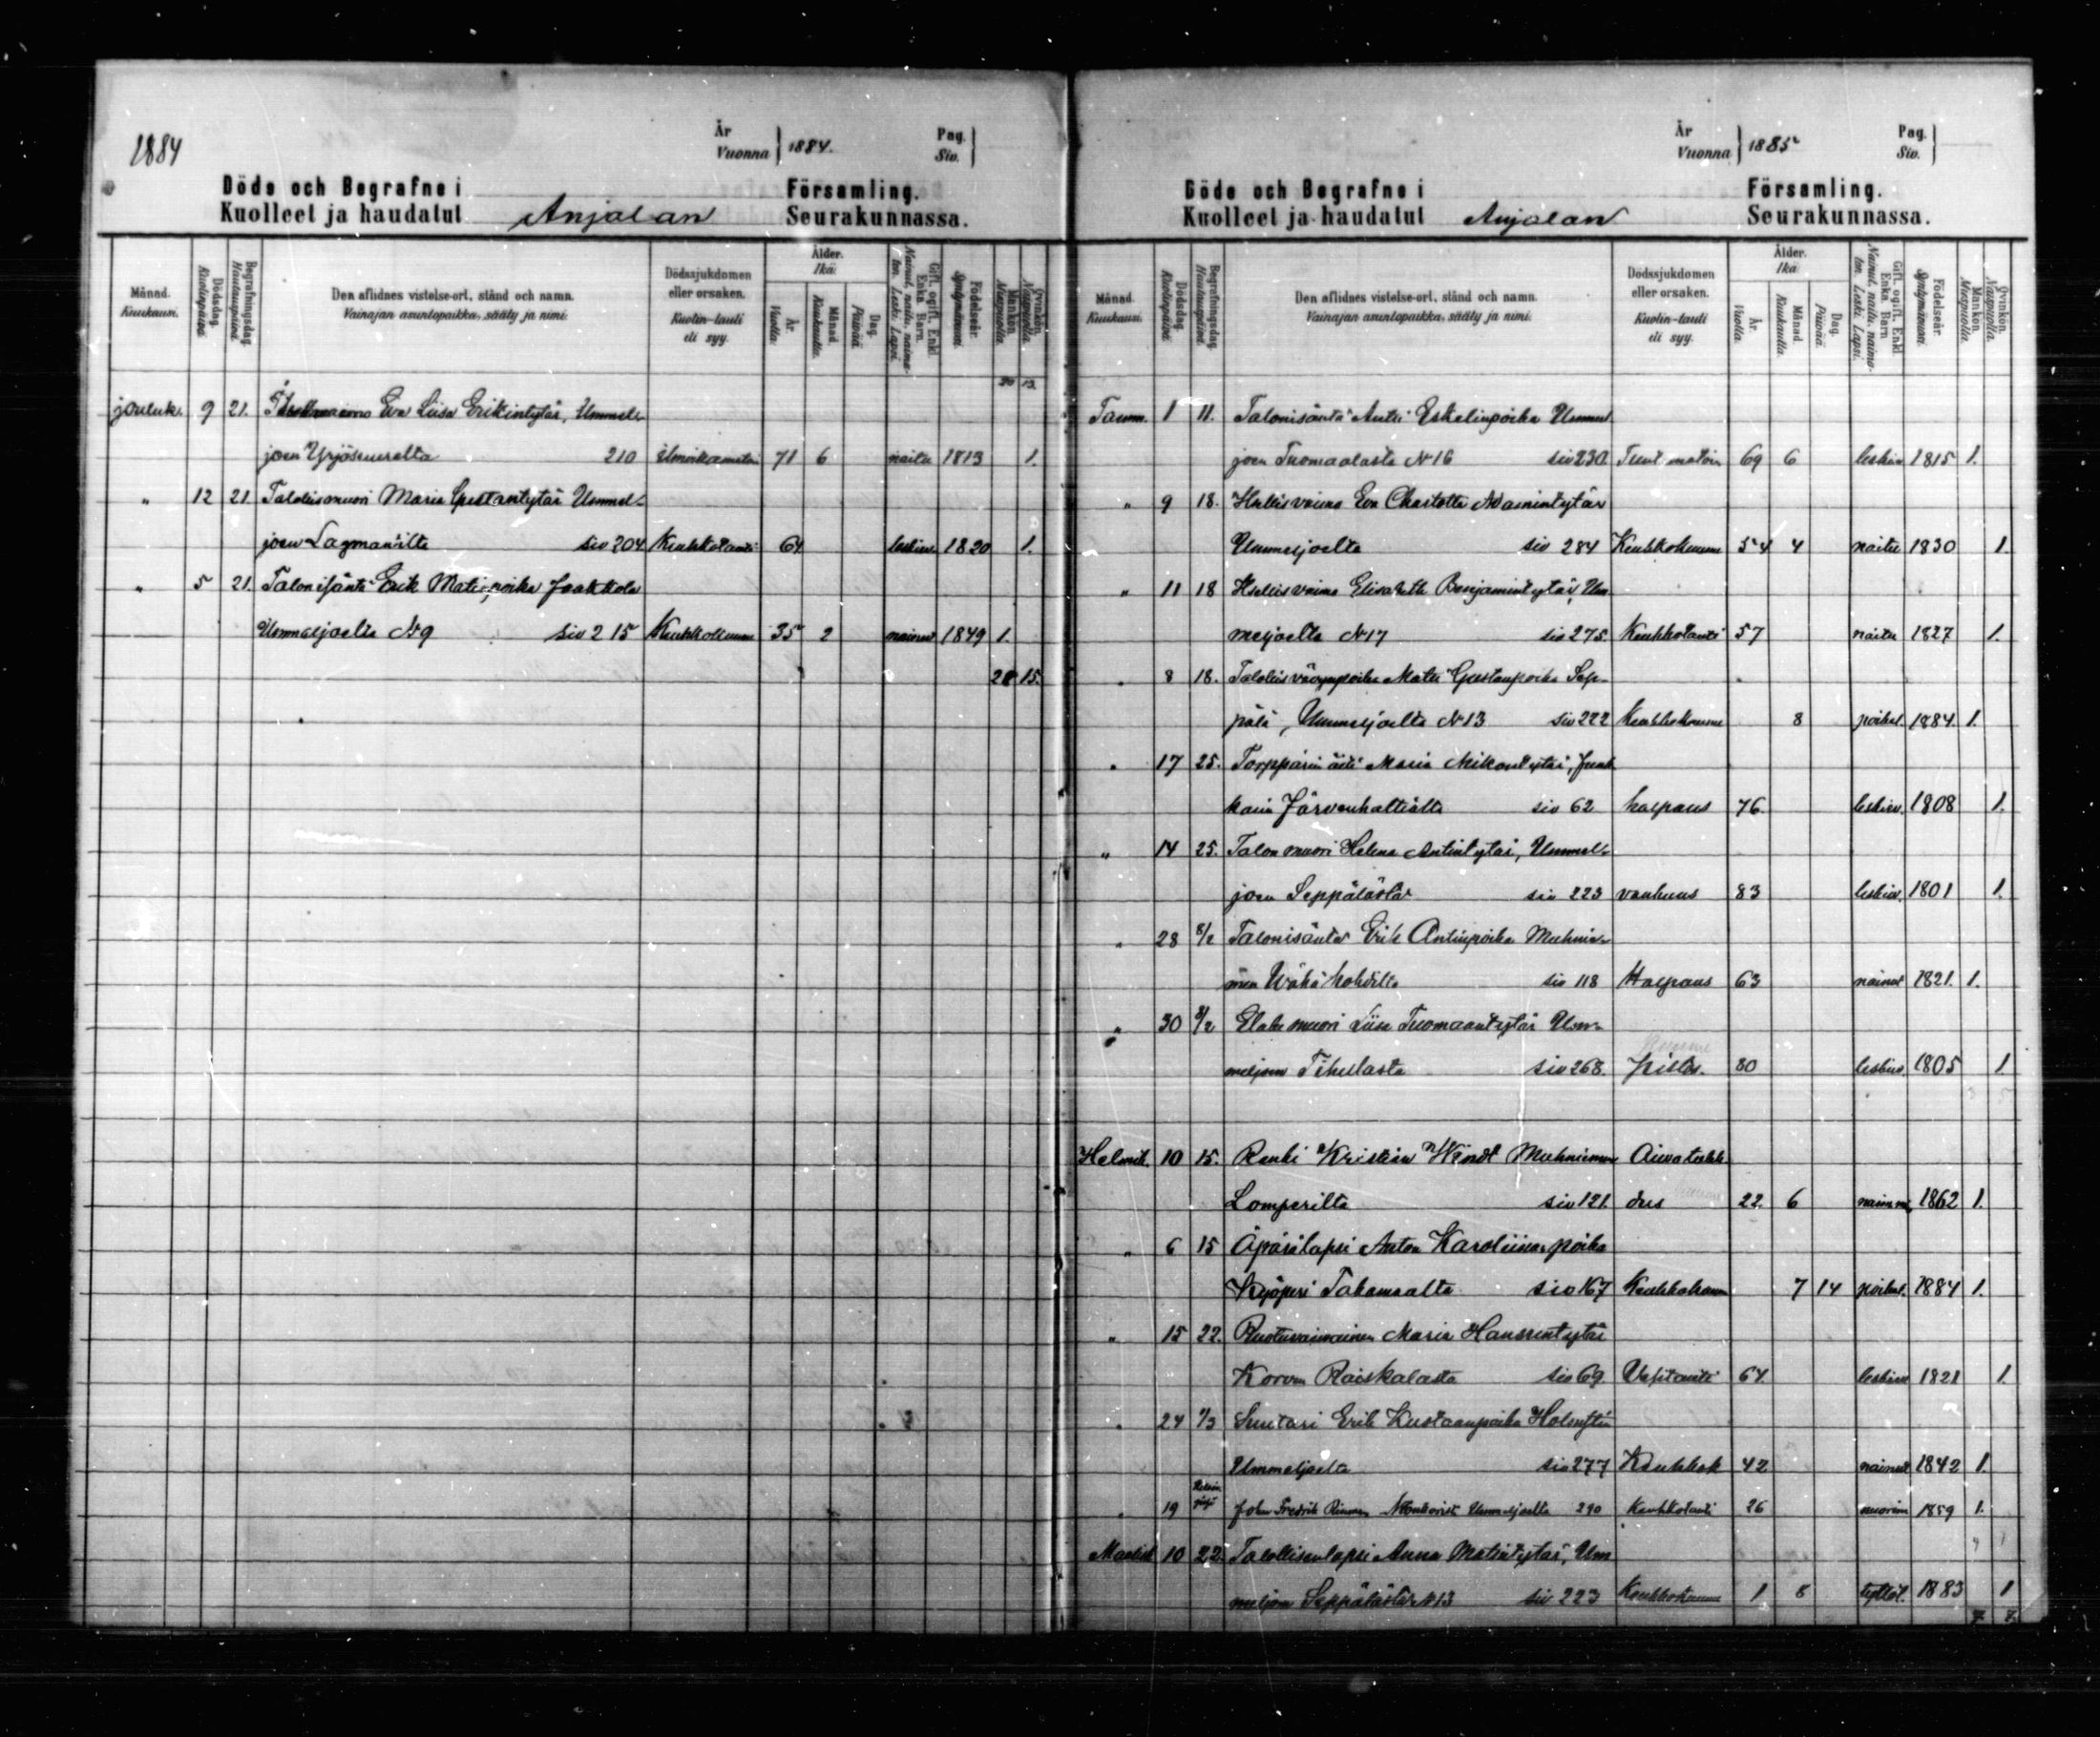 1884
År
Vuonna 1884.
Pag.
Siv.
Döde och Begrafne i Församling.
Kuolleet ja haudatut Anjalan Seurakunnassa.
Månad. Kuukausi.
Dödsdag. Kuolinpäivä.
Begrafningsdag. Hautauspäivä.
Den aflidnes vistelse-ort, stånd och namn.
Vainajan asuntopaikka, sääty ja nimi.
Dödssjukdomen eller orsaken.
Kuolin-tauti eli syy.
Ålder. Ikä.
År. Vuotta.
Månad. Kuukautta.
Dag. Päivää.
Gift, ogift, Enkl. Enka. Barn.
Nainut, naitu, naimaton. Leski. Lapsi.
Födelseår. Syntymävuosi.
Mankön. Miespuolia.
Qvinkön. Naispuolia.
20 13.
jouluk. 9 21. Eva Liisa Erikintytär, Ummel-
joen Yrjöseuralta 210 71 6 naitu 1813 1.
" 12 21 Talollismuori Maria Gustavintytär Ummel-
joen Lagmanilta siv 204 Keuhkotauti 64 leskiv. 1820 1.
" 5 21. Talonisäntä Erik Matinpoika Jaakkola
Ummeljoelta N 9 siv 215 Keuhkokuume 35 2 nainut 1849 1.
21 15.
År
Vuonna 1885
Pag.
Siv.
Döde och Begrafne i Församling.
Kuolleet ja haudatut Anjalan Seurakunnassa.
Månad. Kuukausi.
Dödsdag. Kuolinpäivä.
Begrafningsdag. Hautauspäivä.
Den aflidnes vistelse-ort, stånd och namn.
Vainajan asuntopaikka, sääty ja nimi.
Dödssjukdomen eller orsaken.
Kuolin-tauti eli syy.
Ålder. Ikä
År. Vuotta.
Månad. Kuukautta.
Dag. Päivää.
Gift, ogift, Enkl. Enka. Barn
Nainut, naitu, naimaton. Leski. Lapsi.
Födelseår. Syntymävuosi.
Mankön. Miespuolia.
Qvinkön. Naispuolia.
Tamm. 1 11. Talonisäntä Antti Eskelinpoika Ummel-
joen Tuomaalasta N 16 siv 230. Tuntematoin 69 6 leskiv 1815 1.
" 9 18. Itsellisvaimo Eva Charlotta Adamintytär
Ummeljoelta siv 284 Keuhkokuume 54 4 naitu 1830 1.
" 11 18 Itsellisvaimo Elisabeth Benjamintytär, Um-
meljoelta N 17 siv 275. Keuhkotauti 57 naitu 1827 1.
" 8 18. Talollisvävynpoika Matti Gustavpoika Sep-
pälä, Ummeljoelta N 13 siv 222 Keuhkokuume 8 poikal. 1884. 1.
" 17 25. Torpparin äiti Maria Mikontytär,
Järvenhaltialta siv 62 halpaus 76 leskiv. 1808 1.
" 14 25. Talonmuori Helena Antintytär, Ummel-
joen Seppälästä siv 223 vanhuus 83 leskiv. 1801 1.
" 28 8/2 Talonisäntä Erik Antinpoika Muhnie-
men siv 118 Halpaus 63 nainut 1821. 1.
" 30 8/2 muori Liisa Tuomaantytär Um-
meljoen Tihulasta siv 268. pistos. 80 leskiv 1805 1
Helmik. 10 15. Renki Kristian Muhniemen Aivotulehdus
Lomperilta siv 121. 22. 6 1862 1.
" 6 15 Äpärälapsi Anton Karoliinan poika
Takamaalta siv 167 Keuhkokuume 7 14 poikal. 1884 1.
" 15 22. Ruotuvaivainen Maria Hanssintytär
Korven Raiskalasta siv 69 Vesitauti 64 leskiv 1821 1.
" 24 1/3 Suutari Erik Kustaanpoika
Ummeljoelta siv 277 Keuhkok 42 nainut 1842 1.
" 19 Johan Fredrik Ummeljoelta 290 Keuhkotauti 26 1859 1.
Maalisk 10 22 Talollisenlapsi Anna Matintytär, Um
meljoen Seppälästä N 13 siv 223 Keuhkokuume 1 8 tyttöl. 1883 1
7. 7.